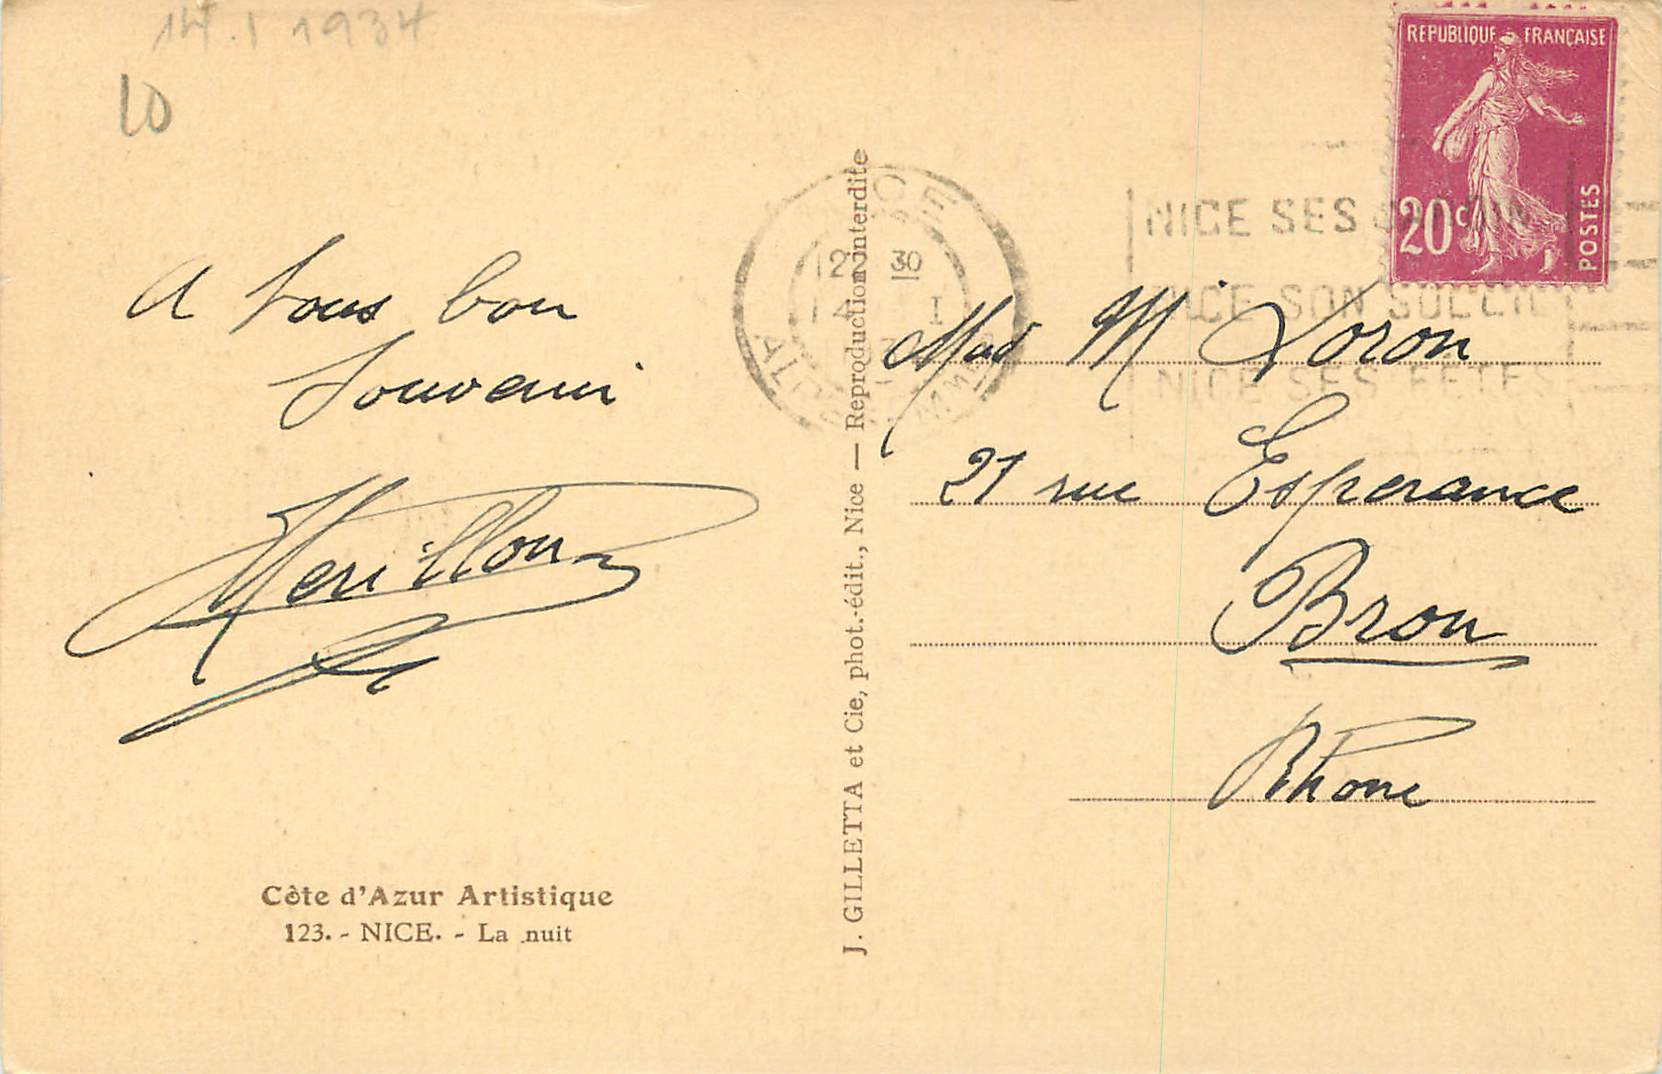 14.1 1934
10
A tous bon
Souvenir
Merillon
Côte d'Azur Artistique
123. - NICE. - La nuit
J. GILLETTA et Cie, phot.-édit., Nice — Reproduction interdite
NICE
12 30
14 I
ALPES
REPUBLIQUE FRANÇAISE
20c
POSTES
NICE SES
NICE SON SOLEIL
NICE SES FÊTES
Mad M Loron
21 rue Esperance
Bron
Rhone